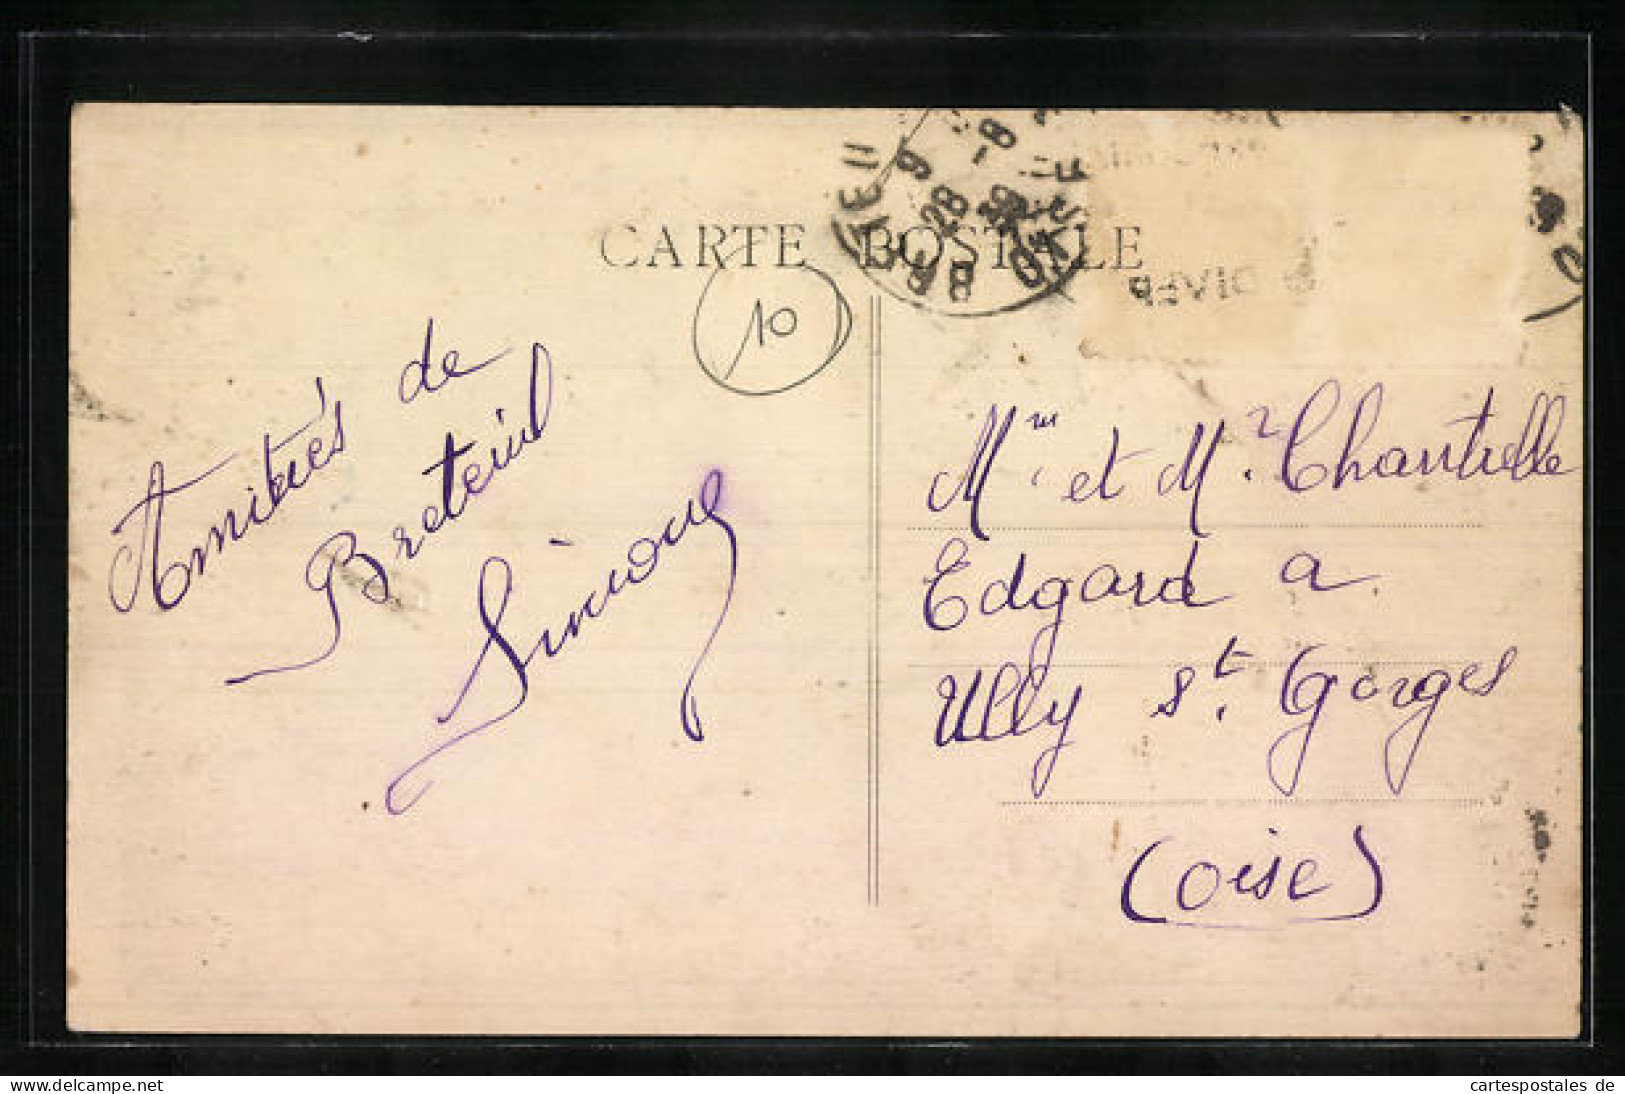 CARTE POSTALE
10
Amitiés de
Breteuil
Simone
28
Mm et Mr. Chantrelle
Edgard a
Ully St. Gorges
(Oise)
www.delcampe.net
cartespostales de